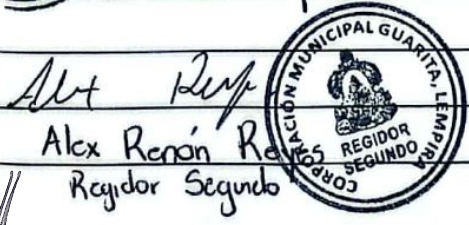 Alex Renán Reyes
Regidor Segundo
CORPORACIÓN MUNICIPAL GUARITA, LEMPIRA
REGIDOR
SEGUNDO